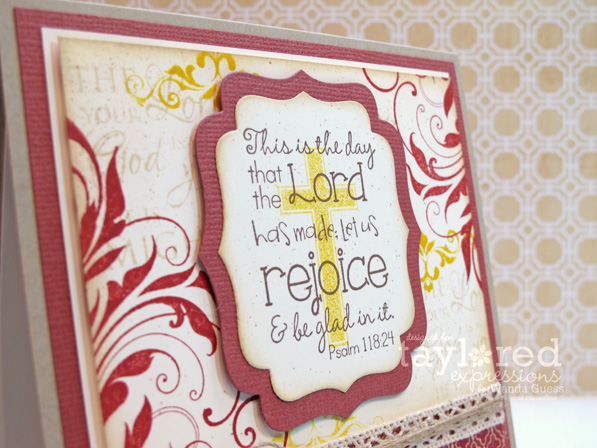 This is the day
that
the Lord
has made; let us
rejoice
& be glad in it.
Psalm 118:24
designed for
taylored
expressions
by Wanda Guess